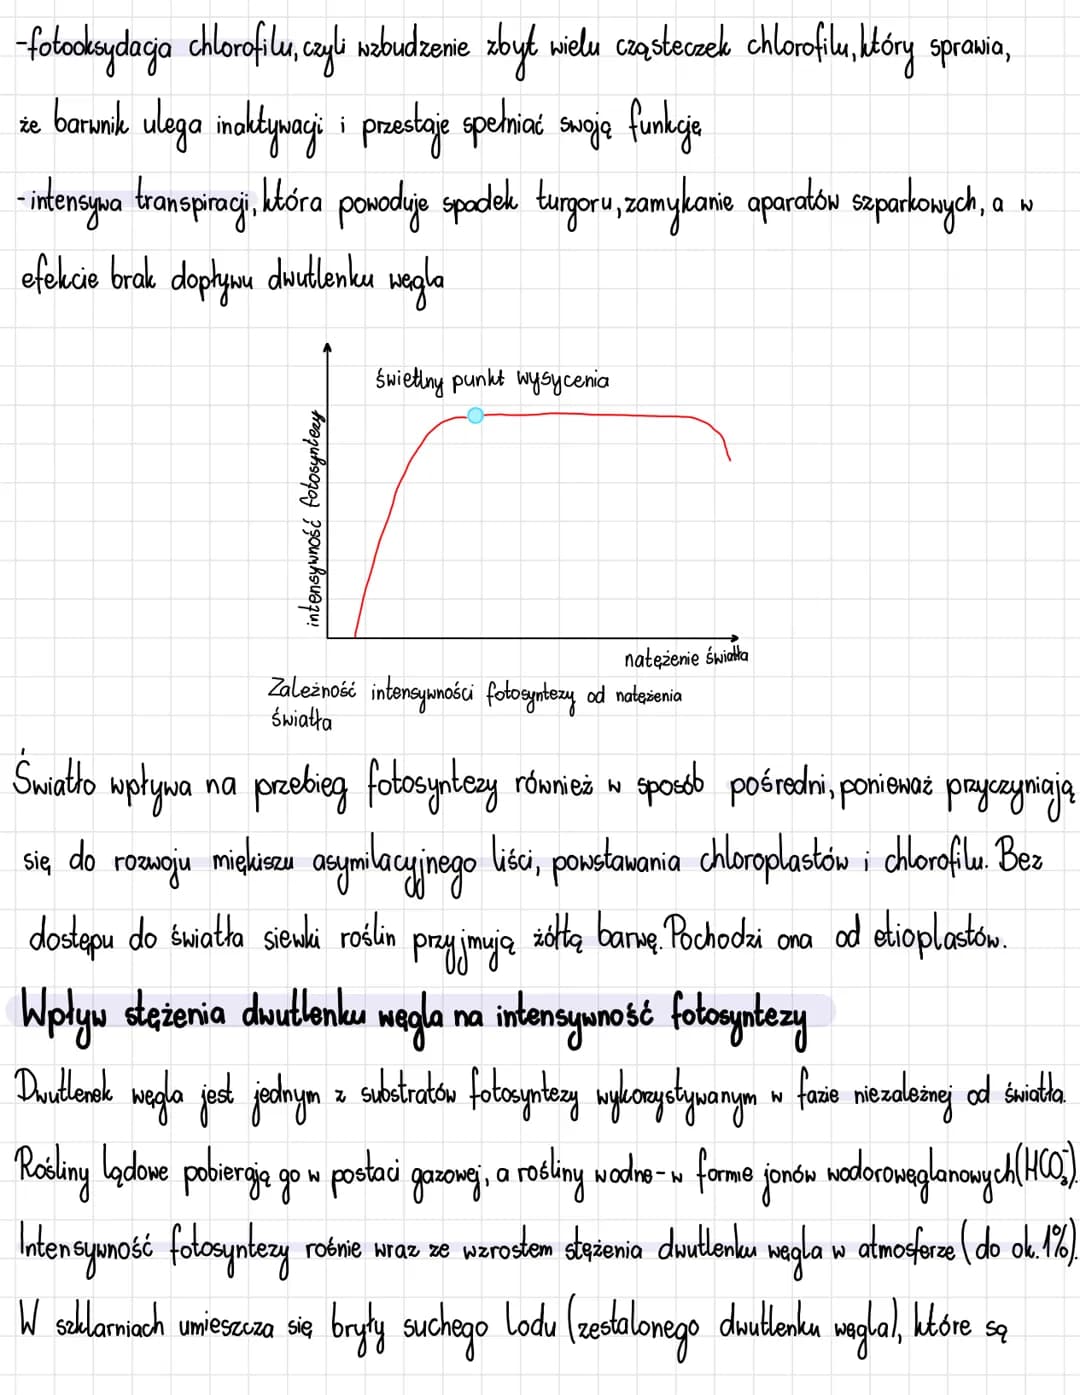 -fotooksydacja chlorofilu, czyli wzbudzenie zbyt wielu cząsteczek chlorofilu, który sprawia,
że barwnik ulega inaktywacji i przestaje spełniać swoją funkcję
-intensywa transpiracji, która powoduje spadek turgoru, zamykanie aparatów szparkowych, a w
efekcie brak dopływu dwutlenku węgla
świetlny punkt wysycenia
intensywność fotosyntezy
natężenie światła
Zależność intensywności fotosyntezy od natężenia
światła
Światło wpływa na przebieg fotosyntezy również w sposób pośredni, ponieważ przyczyniają
się do rozwoju miękiszu asymilacyjnego liści, powstawania chloroplastów i chlorofilu. Bez
dostępu do światła siewki roślin przyjmują żółtą barwę. Pochodzi ona od etioplastów.
Wpływ stężenia dwutlenku węgla na intensywność fotosyntezy
Dwutlenek węgla jest jednym z substratów fotosyntezy wykorzystywanym w fazie niezależnej od światła.
Rośliny lądowe pobierają go w postaci gazowej, a rośliny wodne-w formie jonów wodorowęglanowych (HCO₃⁻).
Intensywność fotosyntezy rośnie wraz ze wzrostem stężenia dwutlenku węgla w atmosferze (do ok. 1%).
W szklarniach umieszcza się bryły suchego lodu (zestalonego dwutlenku węgla), które są